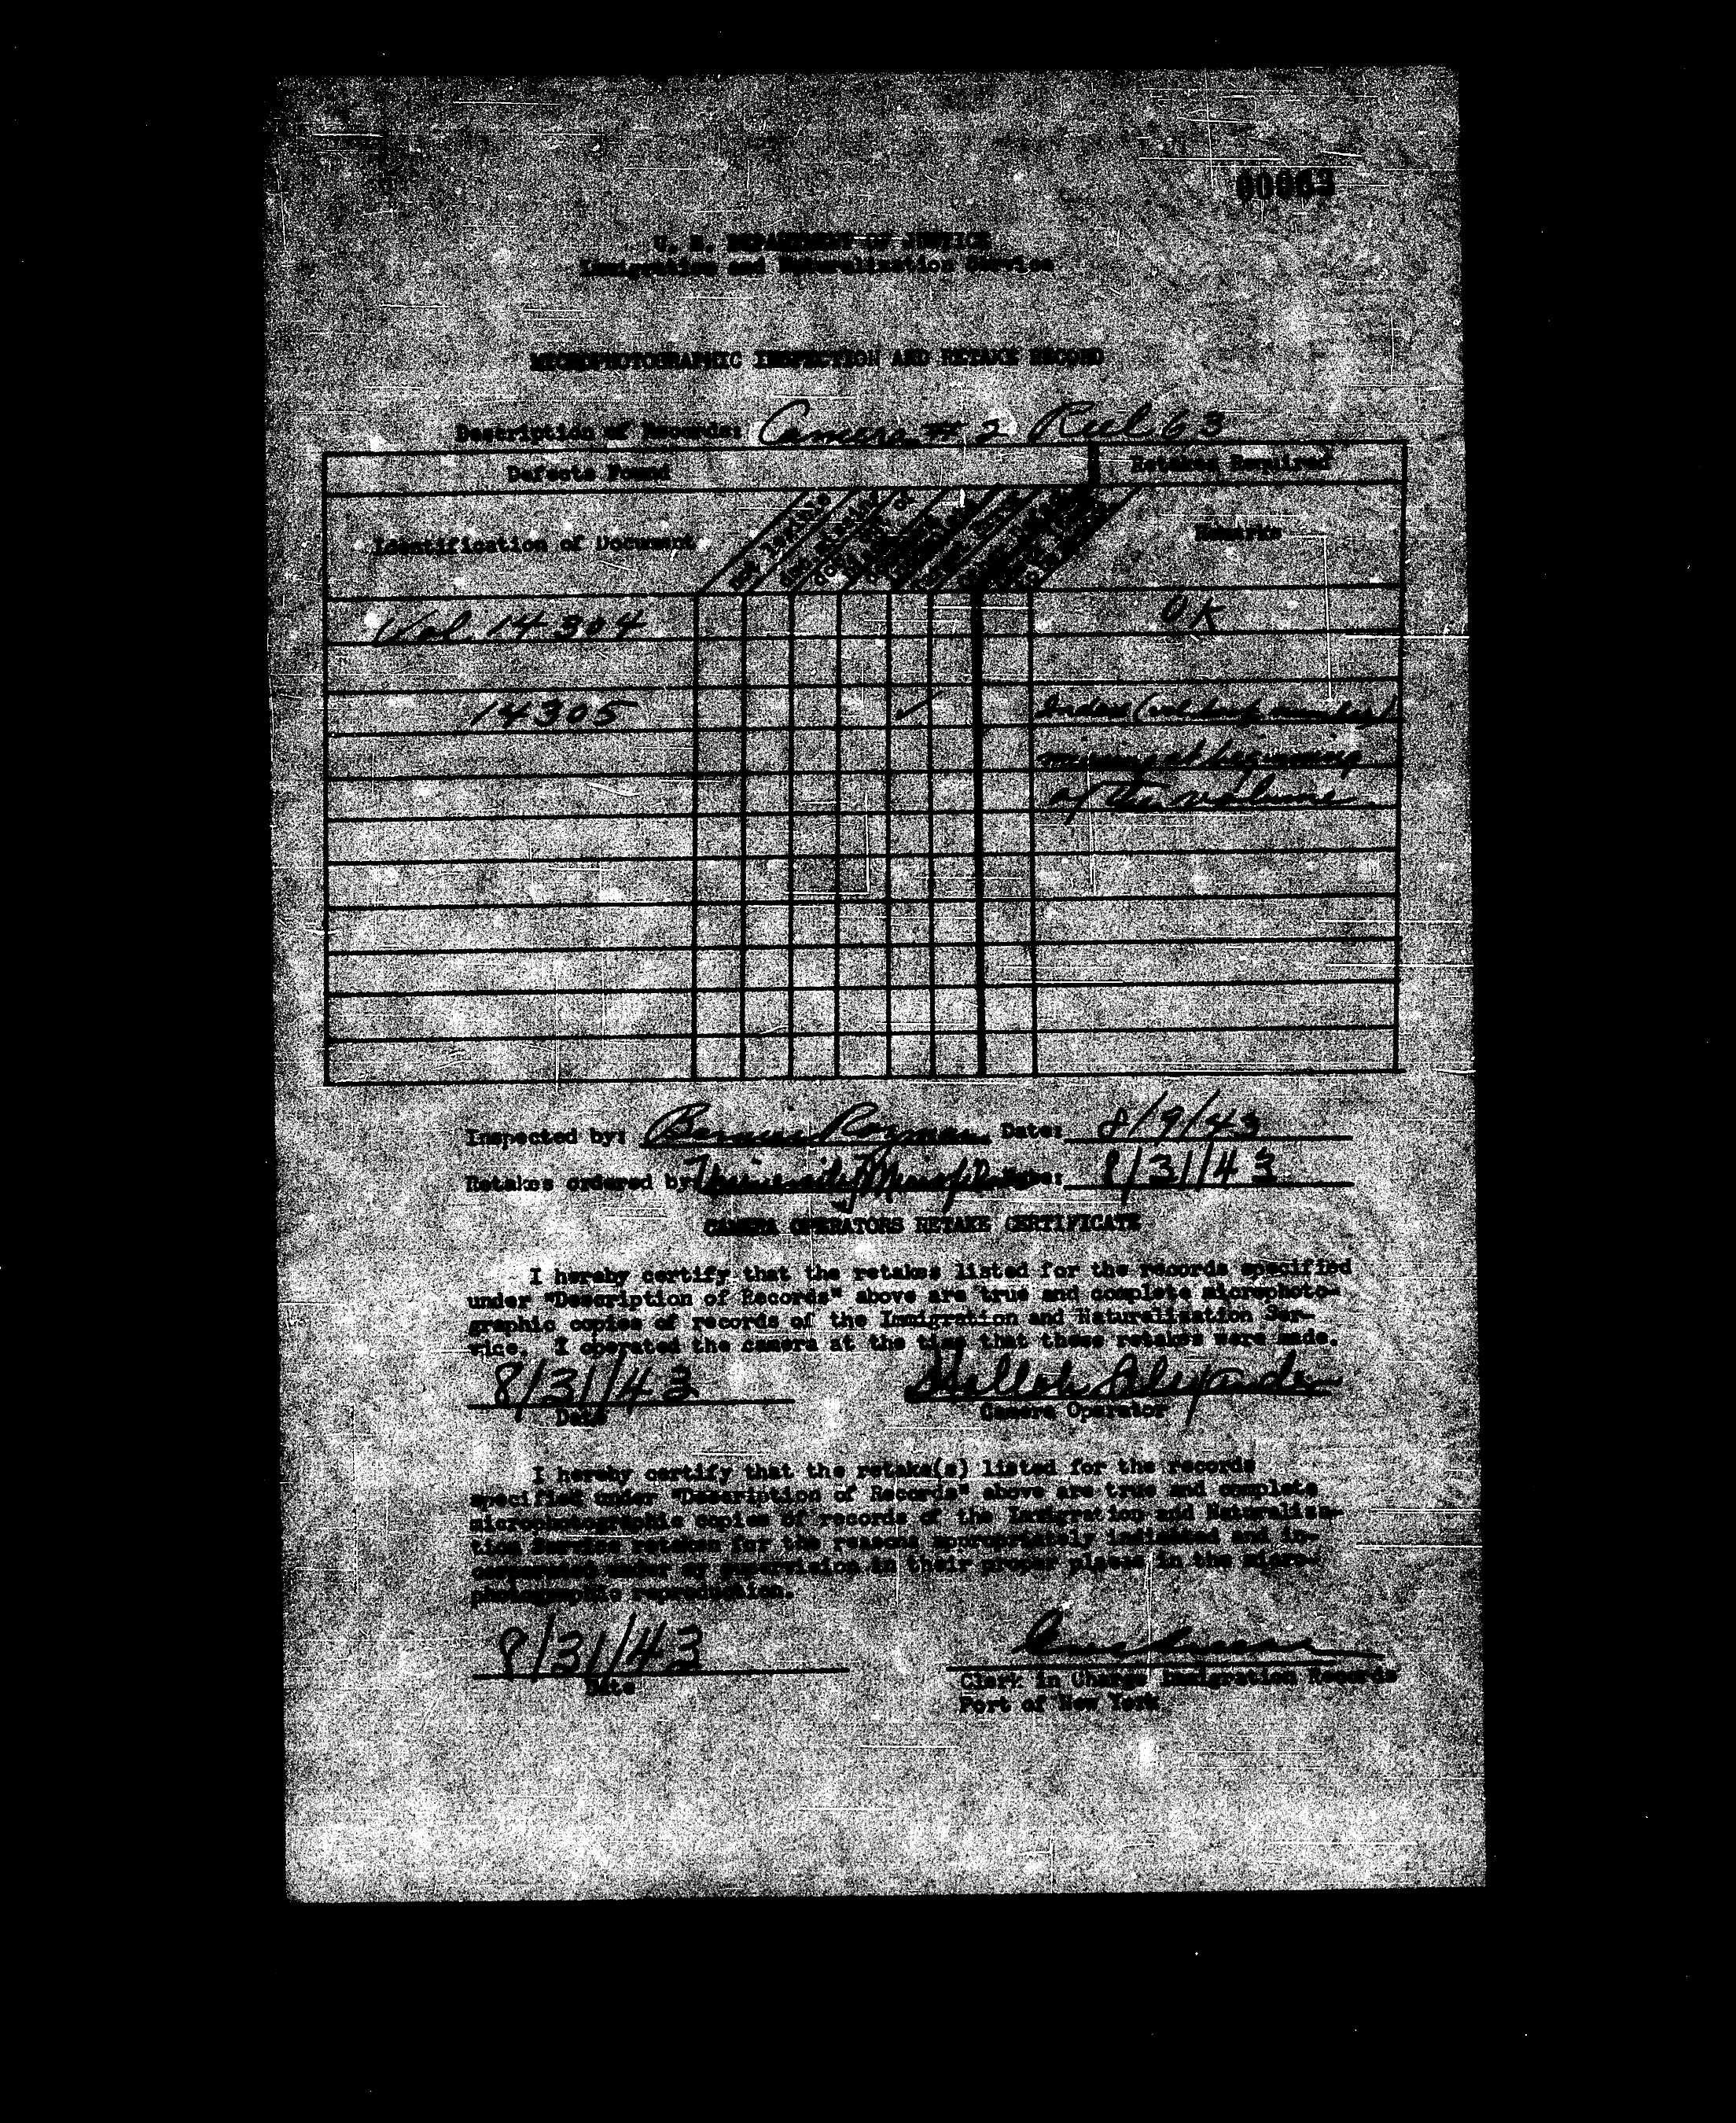 00063
U. S. DEPARTMENT OF JUSTICE
Immigration and Naturalization Service
MICROPHOTOGRAPHIC INSPECTION AND RETAKE RECORD
Description of Records: Camera # 2 Reel 63
Defects Found Retakes Required
Identification of Document Remarks
Vol. 14304 OK
14305 ✓ Index
missing at beginning
of the volume
Inspected by: Date: 8/9/43
Retakes ordered by: 8/31/43
CAMERA OPERATORS RETAKE CERTIFICATE
I hereby certify that the retakes listed for the records specified
under "Description of Records" above are true and complete microphoto-
graphic copies of records of the Immigration and Naturalization Ser-
vice. I operated the camera at the time that these retakes were made.
8/31/43 Alexander
Date Camera Operator
I hereby certify that the retake(s) listed for the records
specified under "Description of Records" above are true and complete
microphotographic copies of records of the Immigration and Naturaliza-
tion Service retaken for the reasons appropriately indicated and in-
corporated under my supervision in their proper places in the micro-
photographic reproduction.
8/31/43
Date Clerk in Charge Immigration Records
Port of New York